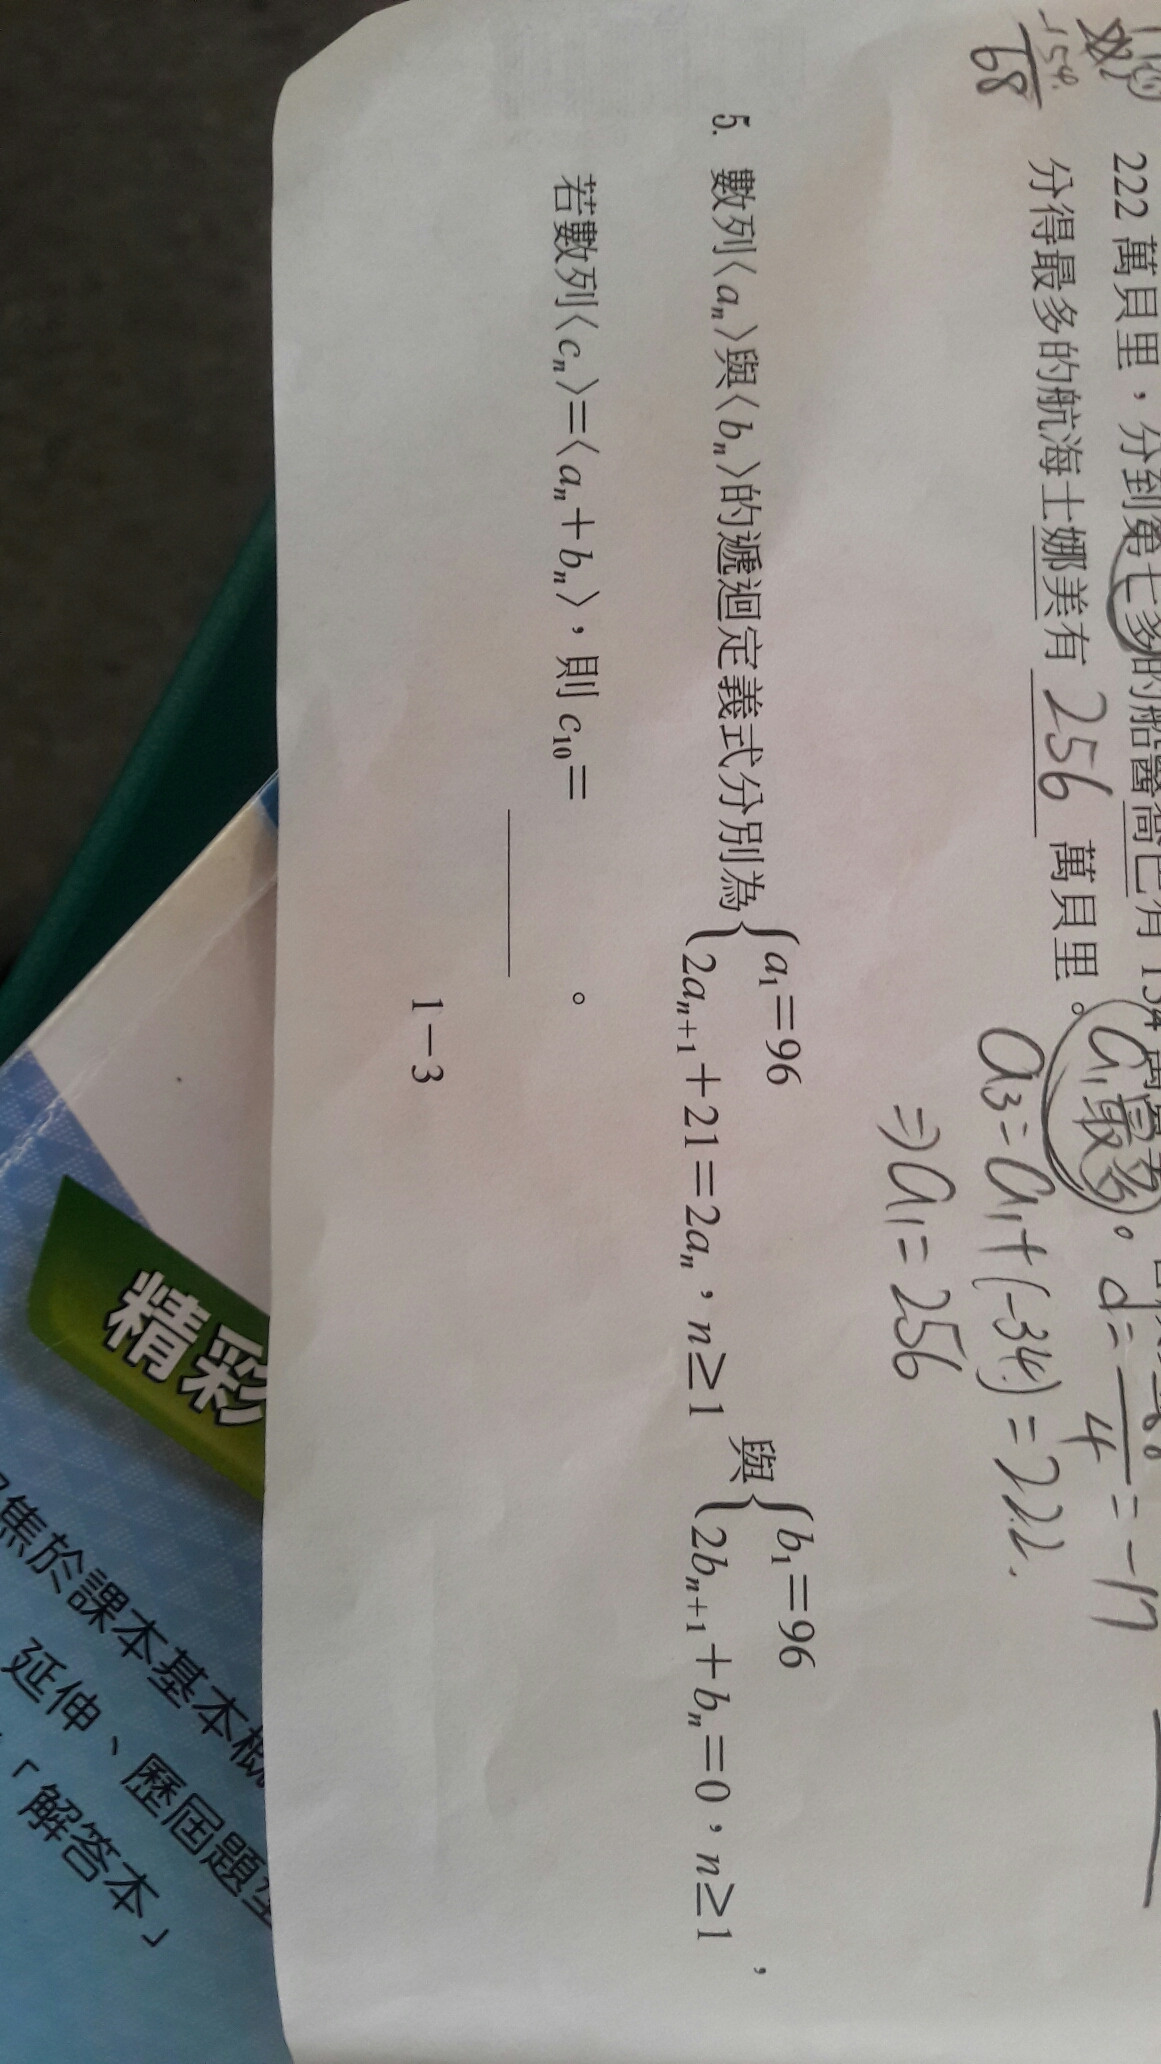 222 萬貝里，分到第七多的船醫喬巴有 154 萬貝里
分得最多的航海士娜美有 256 萬貝里。
-154
68
a₁最多。 d= /4 = -17
a₃=a₁+(-34)=222.
⇒a₁=256
5. 數列〈aₙ〉與〈bₙ〉的遞迴定義式分別為{a₁=96 2aₙ₊₁+21=2aₙ，n≥1 與{b₁=96 2bₙ₊₁+bₙ=0，n≥1，
若數列〈cₙ〉=〈aₙ+bₙ〉，則 c₁₀= 。
1－3
精彩
焦於課本基本概
延伸、歷屆題型
「解答本」